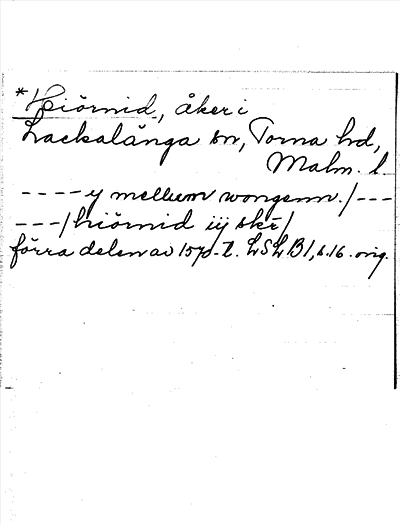 *Hiörnid, åker i
Lackalänga sn, Torna hd,
Malm. l
----- y mellum wongenn. / ---
--- / hiörnid iij skr̄ /
förra delen av 1570-t. LSLB1, s.16. orig.